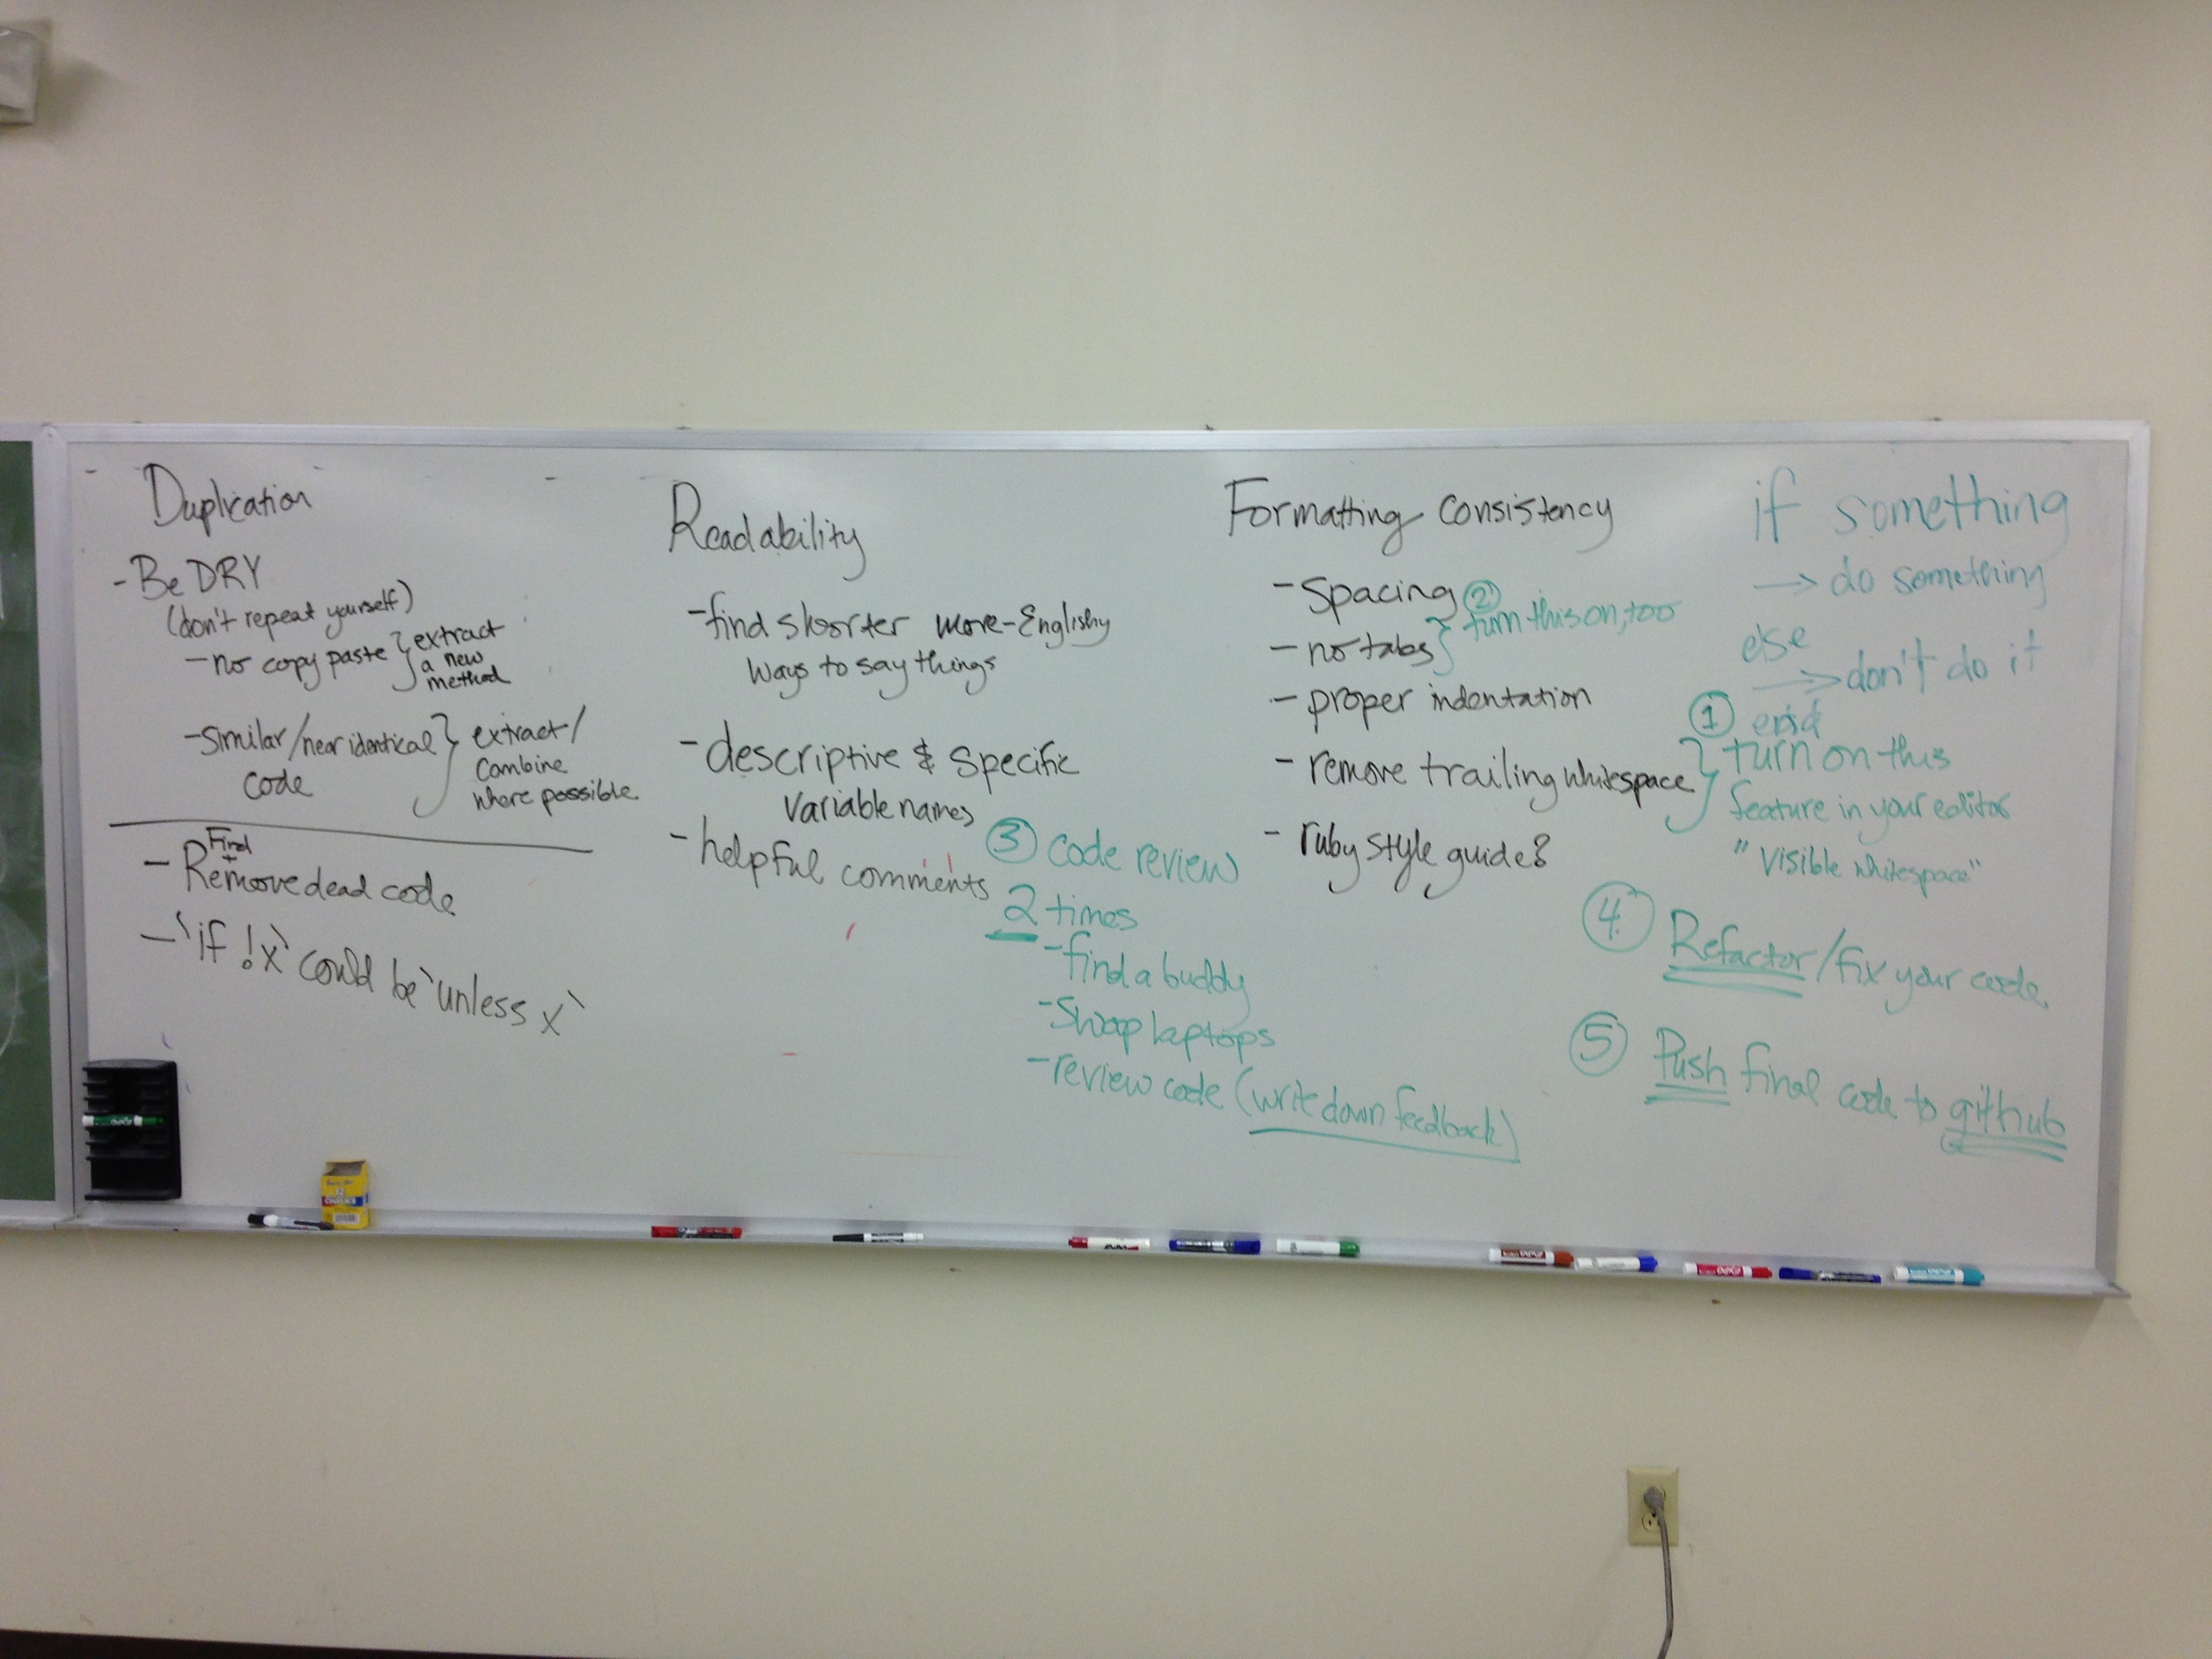 Duplication
- Be DRY
(don't repeat yourself)
- no copy paste } extract
a new
method
- similar/near identical
code
} extract/
combine
where possible
- Find +
Remove dead code
- `if !x` could be `unless x`
Readability
- find shorter more-Englishy
ways to say things
- descriptive & specific
variable names
- helpful comments
③ code review
2 times
- find a buddy
- swap laptops
- review code (write down feedback)
Formatting consistency
- spacing
- no tabs } ② turn this on, too
- proper indentation
- remove trailing whitespace
- ruby style guide?
if something
→ do something
else
→ don't do it
end
① } turn on this
feature in your editor
"Visible whitespace"
④ Refactor/fix your code.
⑤ Push final code to github
12